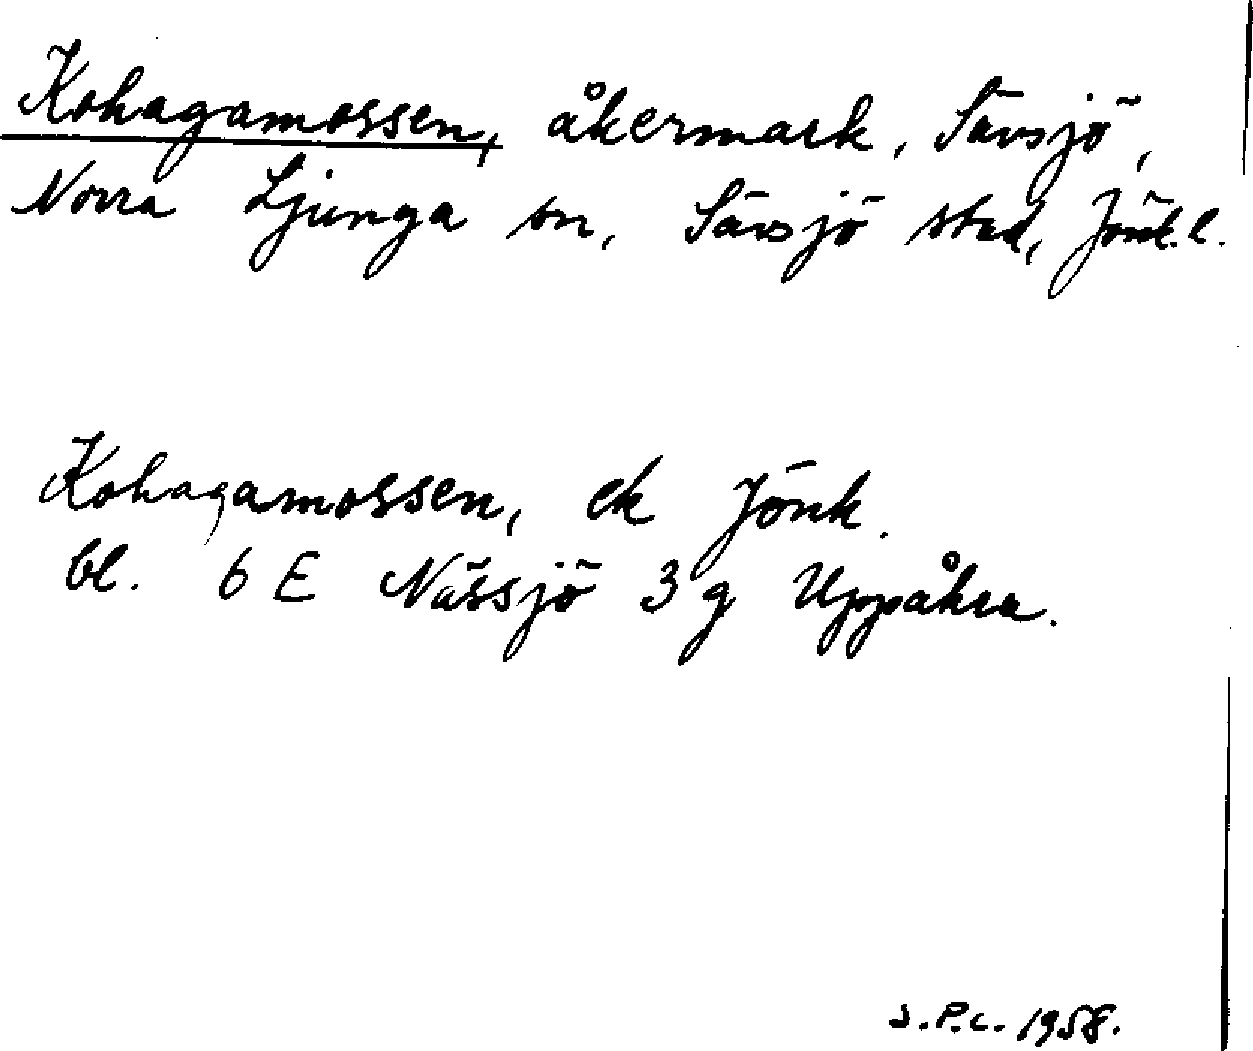 Kohagamossen, åkermark, Sävsjö,
Norra Ljunga sn, Sävsjö stad, Jönk. l.
Kohagamossen, ek Jönk.
bl. 6 E Nässjö 3 g Uppåkra.
S.P.C. 1958.